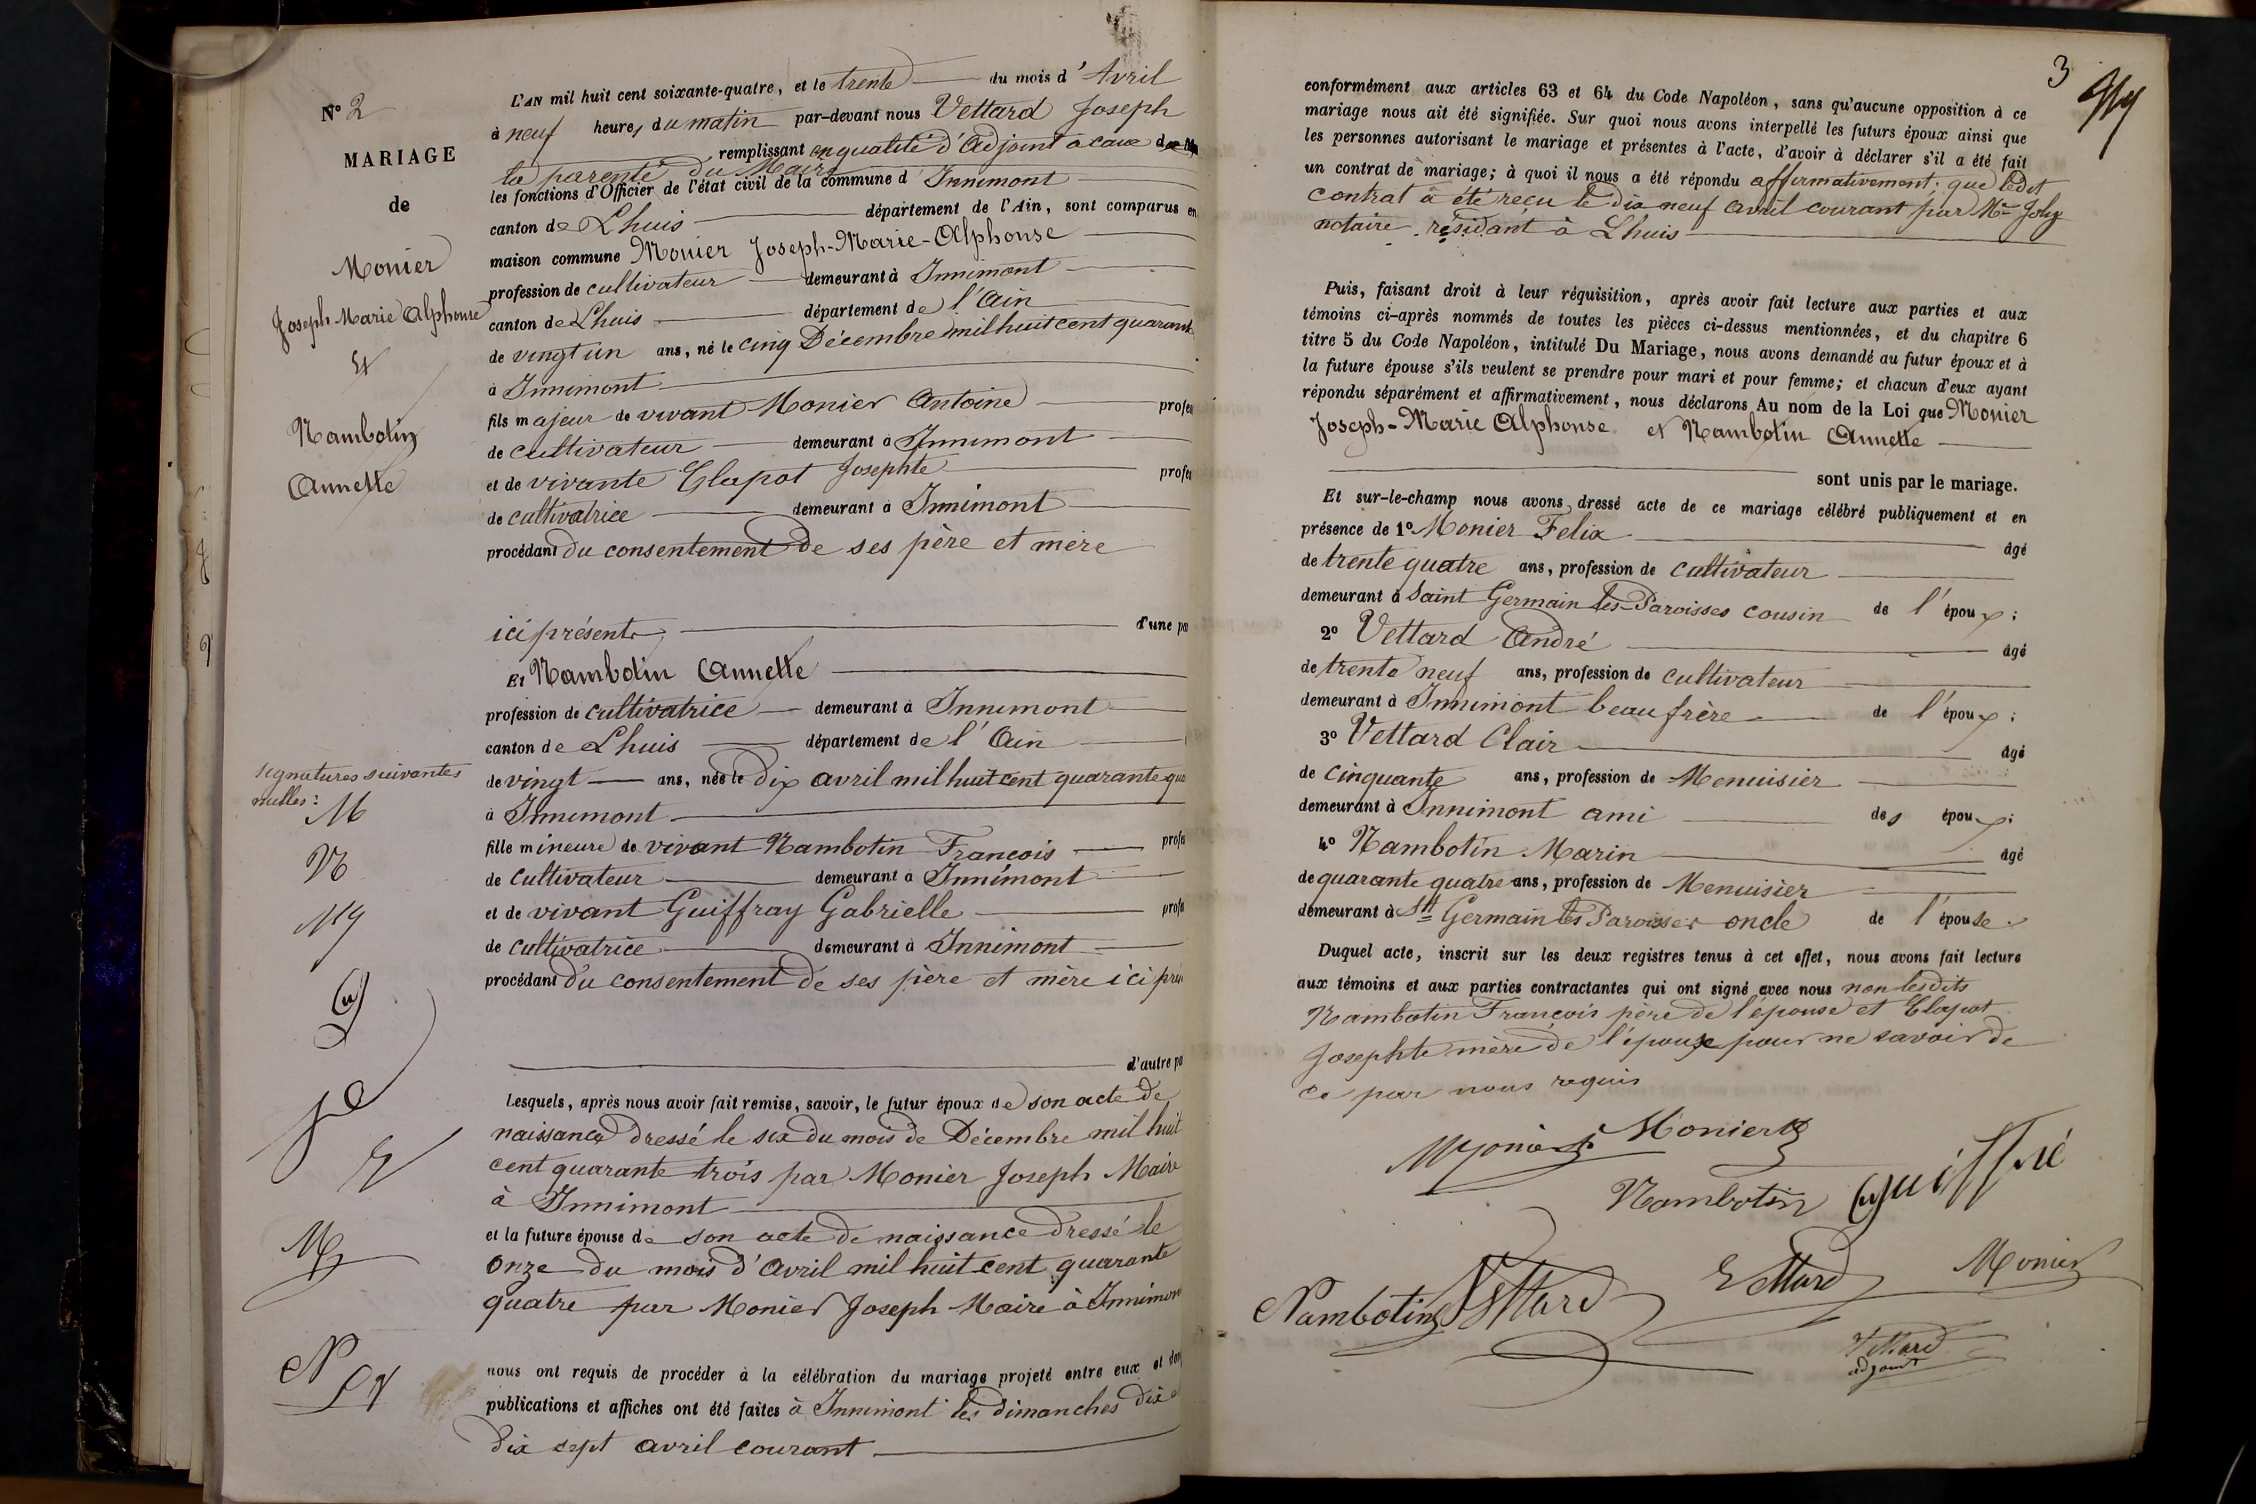 N° 2
MARIAGE
de
Monier
Joseph Marie Alphonse
Et
Nambotin
Annette
signatures suivantes
nulles:
M
N
My
G
N
L'AN mil huit cent soixante-quatre, et le trente du mois d'Avril
à neuf heure, du matin par-devant nous Vettard Joseph
remplissant en qualité d'Adjoint à cause de
la parenté du Maire
les fonctions d'Officier de l'état civil de la commune d'Innimont
canton de Lhuis département de l'Ain, sont comparus en
maison commune Monier Joseph-Marie-Alphonse
profession de cultivateur demeurant à Innimont
canton de Lhuis département de l'Ain
de vingt un ans, né le cinq Décembre mil huit cent quarant
à Innimont
fils majeur de vivant Monier Antoine profes
de cultivateur demeurant à Innimont
et de vivante Clapot Josephte profes
de cultivatrice demeurant à Innimont
procédant du consentement de ses père et mère
ici présents d'une pa
Et Nambotin Annette
profession de cultivatrice demeurant à Innimont
canton de Lhuis département de l'Ain
de vingt ans, née le dix avril mil huit cent quarante qua
à Innimont
fille mineure de vivant Nambotin François profes
de cultivateur demeurant à Innimont
et de vivant Guiffray Gabrielle profes
de cultivatrice demeurant à Innimont
procédant du consentement de ses père et mère ici pré
d'autre pa
Lesquels, après nous avoir fait remise, savoir, le futur époux de son acte de
naissance dressé le six du mois de Décembre mil huit
cent quarante trois par Monier Joseph Maire
à Innimont
et la future épouse de son acte de naissance dressé le
onze du mois d'Avril mil huit cent quarante
quatre par Monier Joseph Maire à Innimont
nous ont requis de procéder à la célébration du mariage projeté entre eux et don
publications et affiches ont été faites à Innimont les dimanches dix
dix sept avril courant
3
conformément aux articles 63 et 64 du Code Napoléon, sans qu'aucune opposition à ce
mariage nous ait été signifiée. Sur quoi nous avons interpellé les futurs époux ainsi que
les personnes autorisant le mariage et présentes à l'acte, d'avoir à déclarer s'il a été fait
un contrat de mariage; à quoi il nous a été répondu affirmativement; que ledit
contrat a été reçu le dix neuf avril courant par Me Joly
notaire résidant à Lhuis
Puis, faisant droit à leur réquisition, après avoir fait lecture aux parties et aux
témoins ci-après nommés de toutes les pièces ci-dessus mentionnées, et du chapitre 6
titre 5 du Code Napoléon, intitulé Du Mariage, nous avons demandé au futur époux et à
la future épouse s'ils veulent se prendre pour mari et pour femme; et chacun d'eux ayant
répondu séparément et affirmativement, nous déclarons Au nom de la Loi que Monier
Joseph-Marie Alphonse et Nambotin Annette
sont unis par le mariage.
Et sur-le-champ nous avons dressé acte de ce mariage célébré publiquement et en
présence de 1° Monier Felix âgé
de trente quatre ans, profession de cultivateur
demeurant à Saint Germain les Paroisses cousin de l'époux;
2° Vettard André âgé
de trente neuf ans, profession de cultivateur
demeurant à Innimont beau frère de l'époux;
3° Vettard Clair âgé
de cinquante ans, profession de Menuisier
demeurant à Innimont ami des époux;
4° Nambotin Marin âgé
de quarante quatre ans, profession de Menuisier
demeurant à St Germain les Paroisses oncle de l'épouse.
Duquel acte, inscrit sur les deux registres tenus à cet effet, nous avons fait lecture
aux témoins et aux parties contractantes qui ont signé avec nous non lesdits
Nambotin François père de l'épouse et Clapot
Josephte mère de l'époux pour ne savoir de
ce par nous requis
Monier Monier
Nambotin Guiffré
Nambotin Vettard Vettard Monier
Vettard
adjoint